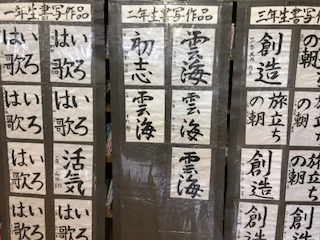 一年生書写作品
いろ
は歌
いろ
は歌
活気
いろ
は歌
いろ
は歌
いろ
は歌
いろ
は歌
いろ
は歌
二年生書写作品
雲海
雲海
雲海
初志
雲海
三年生書写作品
の朝
の朝
の朝
の朝
創造
旅立ち
の朝
創造
創造